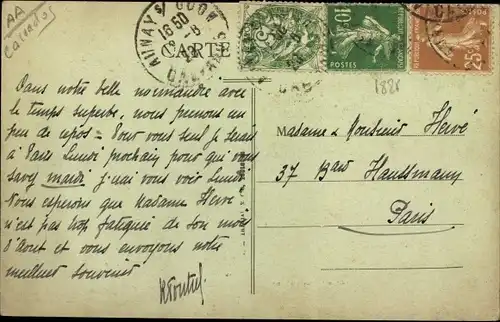 AA
Calvados
AUNAY S ODON
18 50
CALVADOS
CARTE
5
10
POSTES
25
1881
Dans notre belle normandie avec
le temps superbe, nous prenons un
peu de repos - Pour vous seul je serais
à Paris Lundi prochain pour que vous
savez mardi j'irai vous voir Lundi
Nous esperons que Madame Herve
n'est pas trop fatiguée de son mois
d'Aout et vous envoyons notre
meilleur souvenir
Madame & Monsieur Hervé
37 Bard Haussmann
Paris